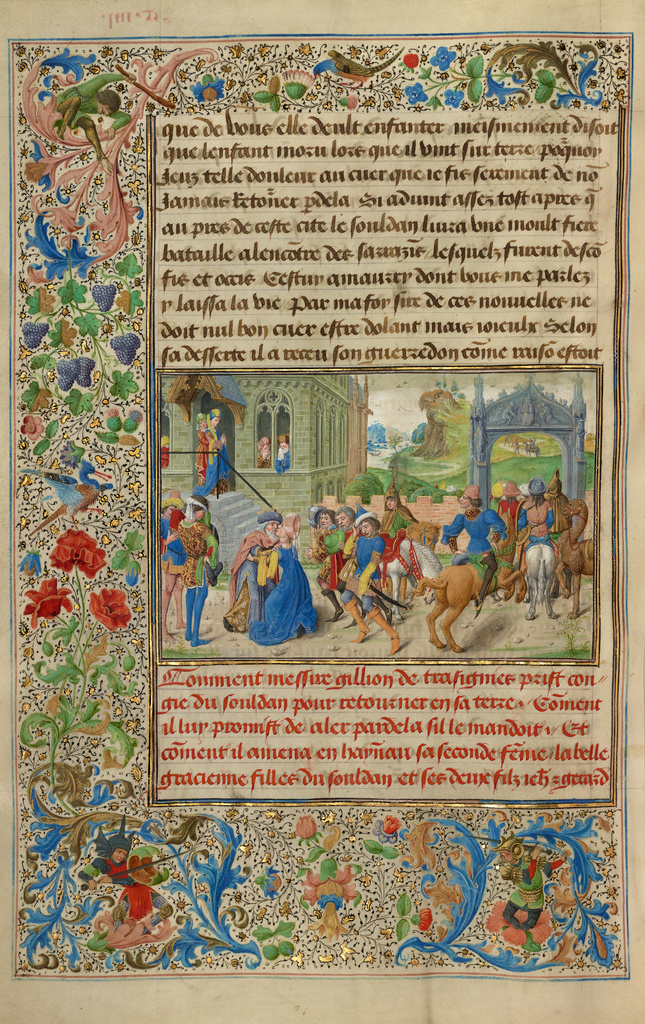 que de vous elle deult enfanter meismement disoit
que lenfant moru lors que il vint sur terre poʳquoy
Jeuz telle douleur au cuer que je fis serement de nō
Jamais Retoʳner p̄dela Si aduint assez tost apres q̄
au pres de ceste cite le souldan liura vne moult fiere
bataille alencōtre des sarazis̄ lesquelz furent desco
fis et occis Cestuy amaury dont vous me parlez
y laissa la vie Par ma foy sire de ces nouuelles ne
doit nul bon cuer estre dolant mais ioieulx Selon
sa desserte il a receu son guerredon cōme raisō estoit
Comment messire gillion de trasignies prist con//
gie du souldan pour retourner en sa terre. Cōment
il luy promist de aler pardela sil le mandoit. Et
cōment il amena en haynnau sa seconde fēme / la belle
gracienne fille du souldan et ses deux filz ieh̄ z gerard